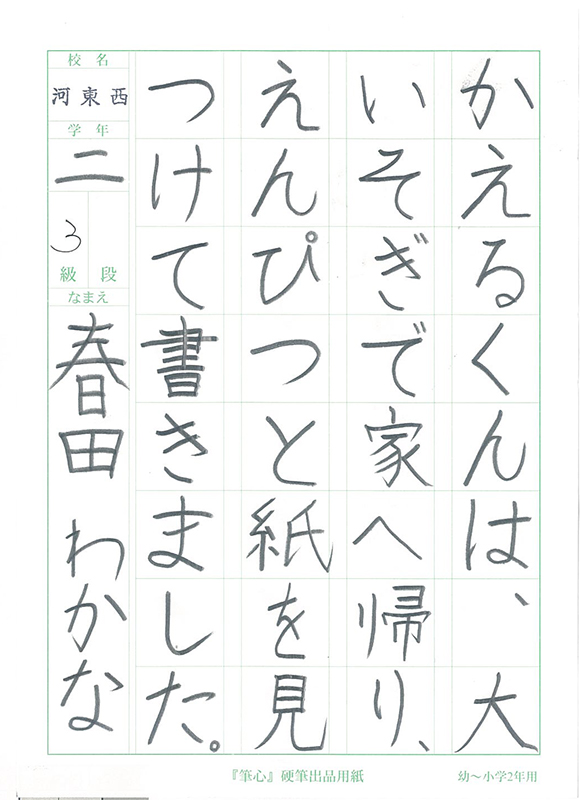 かえるくんは、大
いそぎで家へ帰り、
えんぴつと紙を見
つけて書きました。
校名
河東西
学年
二
3
級 段
なまえ
春田 わかな
『筆心』硬筆出品用紙
幼～小学2年用